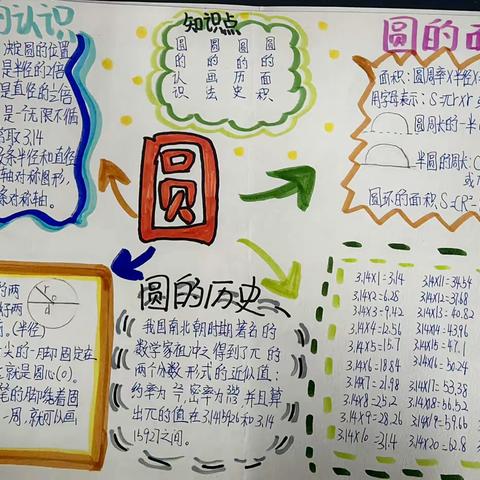 的认识
决定圆的位置
是半径的2倍
是直径的
是一个无限不循
取3.14
条半径和直径
轴对称图形,
条对称轴。
知识点
圆的认识
圆的画法
圆的历史
圆的面积
圆的面
面积:圆周率×半径×
用字母表示:S=πr×r
圆周长的一半
半圆的周长:
圆环的面积S=(R²-
圆
的两
好两
(半径)
r
o
d
尖的一脚固定在
就是圆心(O)。
笔的脚绕着固
一周,就可以画
圆的历史
我国南北朝时期著名的
数学家祖冲之得到了π的
两个分数形式的近似值:
约率为 密率为 并且算
出π的值在3.1415926和3.14
15927之间。
3.14×1=3.14
3.14×2=6.28
3.14×3=9.42
3.14×4=12.56
3.14×5=15.7
3.14×6=18.84
3.14×7=21.98
3.14×8=25.2
3.14×9=28.26
3.14×10=31.4
3.14×11=34.54
3.14×12=37.68
3.14×13=40.82
3.14×14=43.96
3.14×15=47.1
3.14×16=50.24
3.14×17=53.38
3.14×18=56.52
3.14×19=59.66
3.14×20=62.8